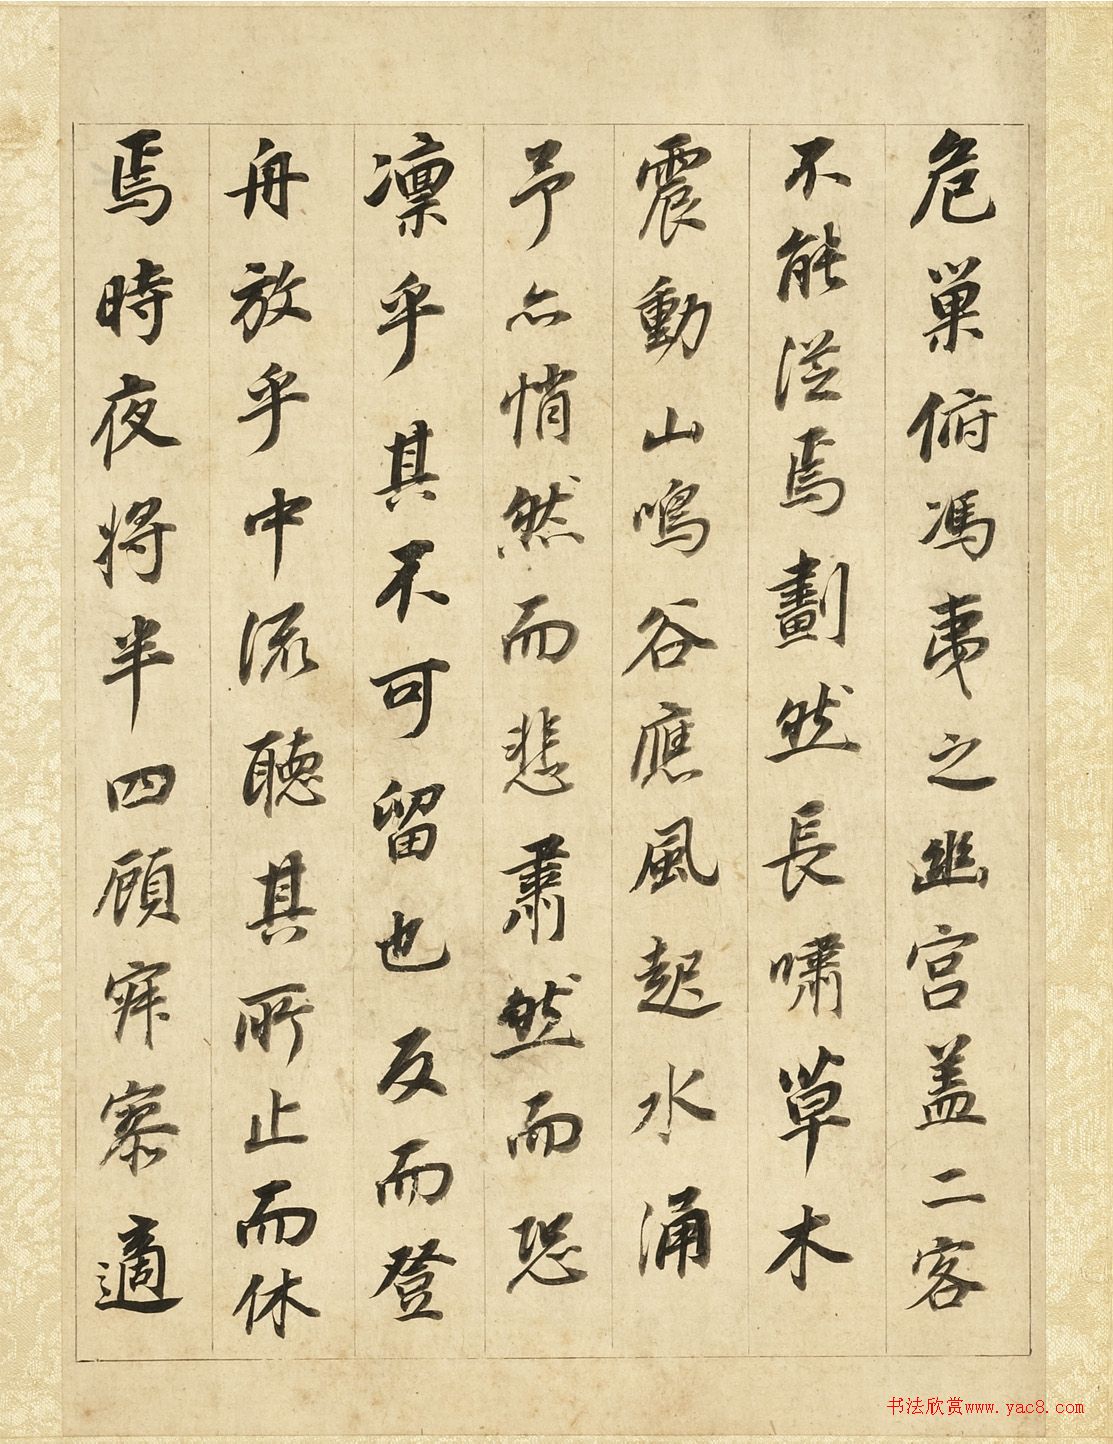 危巢俯馮夷之幽宮盖二客
不能從焉劃然長嘯草木
震動山鳴谷應風起水涌
予亦悄然而悲肅然而恐
凛乎其不可留也反而登
舟放乎中流聽其所止而休
焉時夜將半四顧寂寥適
书法欣赏www.yac8.com